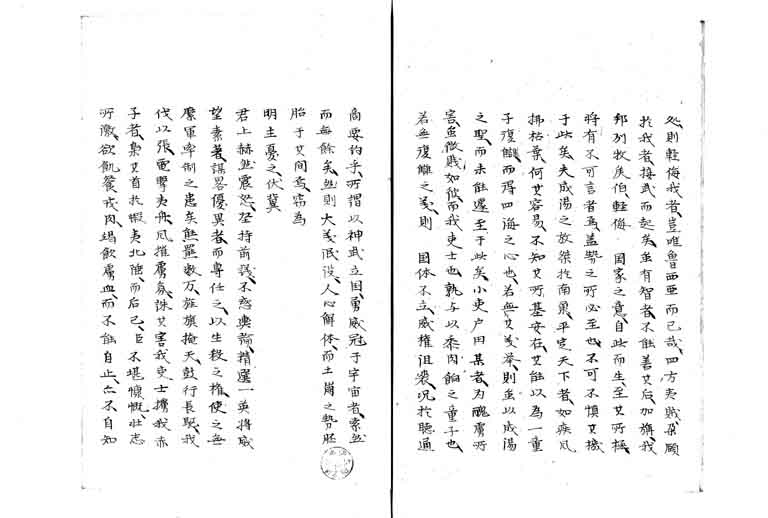 処則軽侮我者、豈唯魯西亜而已哉、四方夷賊朶頤
於我者、接武而起矣、雖有智者不能善其后、加旃我
邦列牧矣伯軽侮　国家之意自此而生、至其所極
将有不可言者焉、蓋勢之所必至也、不可不慎其機
于此矣、夫成湯之放桀於南巣、平定天下者、如疾風
掃枯葉、何其容易、不知其所基安在、其能以為一童
子復讎而得四海之心也、若無其義挙、則雖以成湯
之聖、而未能遽至于此矣、小吏戸田某者為醜虜所
害、雖微賤、如彼而我吏士也、孰与以黍肉餉之童子也
若無復讎之義、則　国体不立、威権沮喪、況於聴通
商要約乎、所謂以神武立国、勇威冠于宇宙者、索然
而無余矣、然則大義泯没、人心解体、而土崩之勢胚
胎于其間焉、窃為
明主憂之、伏冀
君上赫然震怒、堅持前議、不惑輿論、精選一英将威
望素著、謀略優異者而専任之、以生殺之権、使之無
縻軍牽制之患矣、能羆数万、旌旗掩天、鼓行長駆、我
伐以張、電撃夷舟、風摧虜衆、誅其害我吏士擄我赤
子者、梟其首於蝦夷北陲、而后已、臣不堪慷慨、壮志
所激、欲飢餐戎肉、渇飲虜血、而不能自止、亦不自知